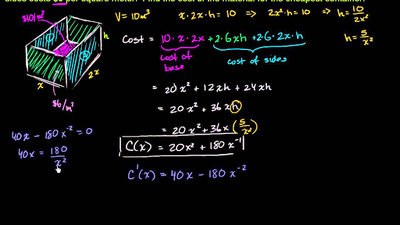 sides costs $6 per square meter. Find the cost of the material for the cheapest container.
$10/m² V = 10m³ x · 2x · h = 10 ⇒ 2x²h = 10 ⇒ h = 10/2x²
h = 5/x²
Cost = 10 · x · 2x + 2·6xh + 2·6·2x·h
cost of base cost of sides
h
2x
x
$6/m²
= 20x² + 12xh + 24xh
= 20x² + 36xh
= 20x² + 36x (5/x²)
C(x) = 20x² + 180x⁻¹
C'(x) = 40x - 180x⁻²
40x - 180x⁻² = 0
40x = 180/x²